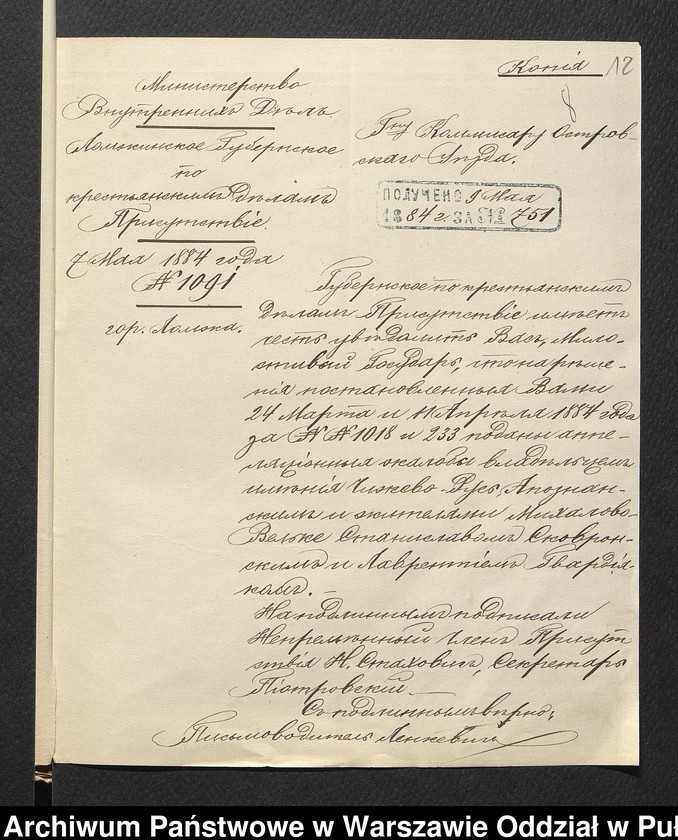 Копія
12
8
Министерство
Внутреннихъ Дѣлъ.
Ломжинское Губернское
по
крестьянскимъ Дѣламъ
Присутствіе
7 Мая 1884 года
№ 1091
гор. Ломжа.
Гну Коммисару Остров-
скаго Уѣзда.
ПОЛУЧЕНО 9 Мая
1884 г. ЗА № 751
Губернское по крестьянскимъ
Дѣламъ Присутствіе имѣетъ
честь увѣдомить Васъ, Мило-
стивый Государь, что на рѣше-
нія постановленныя Вами
24 Марта и 11 Апрѣля 1884 года
за № № 1018 и 233 поданы аппе-
ляціонныя жалобы владѣльцемъ
имѣнія Чижево-Русь, Апознан-
скимъ и жителями Михалово-
Вельке Станиславомъ Сковрон-
скимъ и Лаврентіемъ Гвардія-
комъ.
На подлинномъ подписали
Непремѣнный Членъ Присут
ствія Н. Стаховичъ, Секретарь
Піотровскій.
Съ подлиннымъ вѣрно:
Письмоводитель Ленкевичъ
Archiwum Państwowe w Warszawie Oddział w Puł